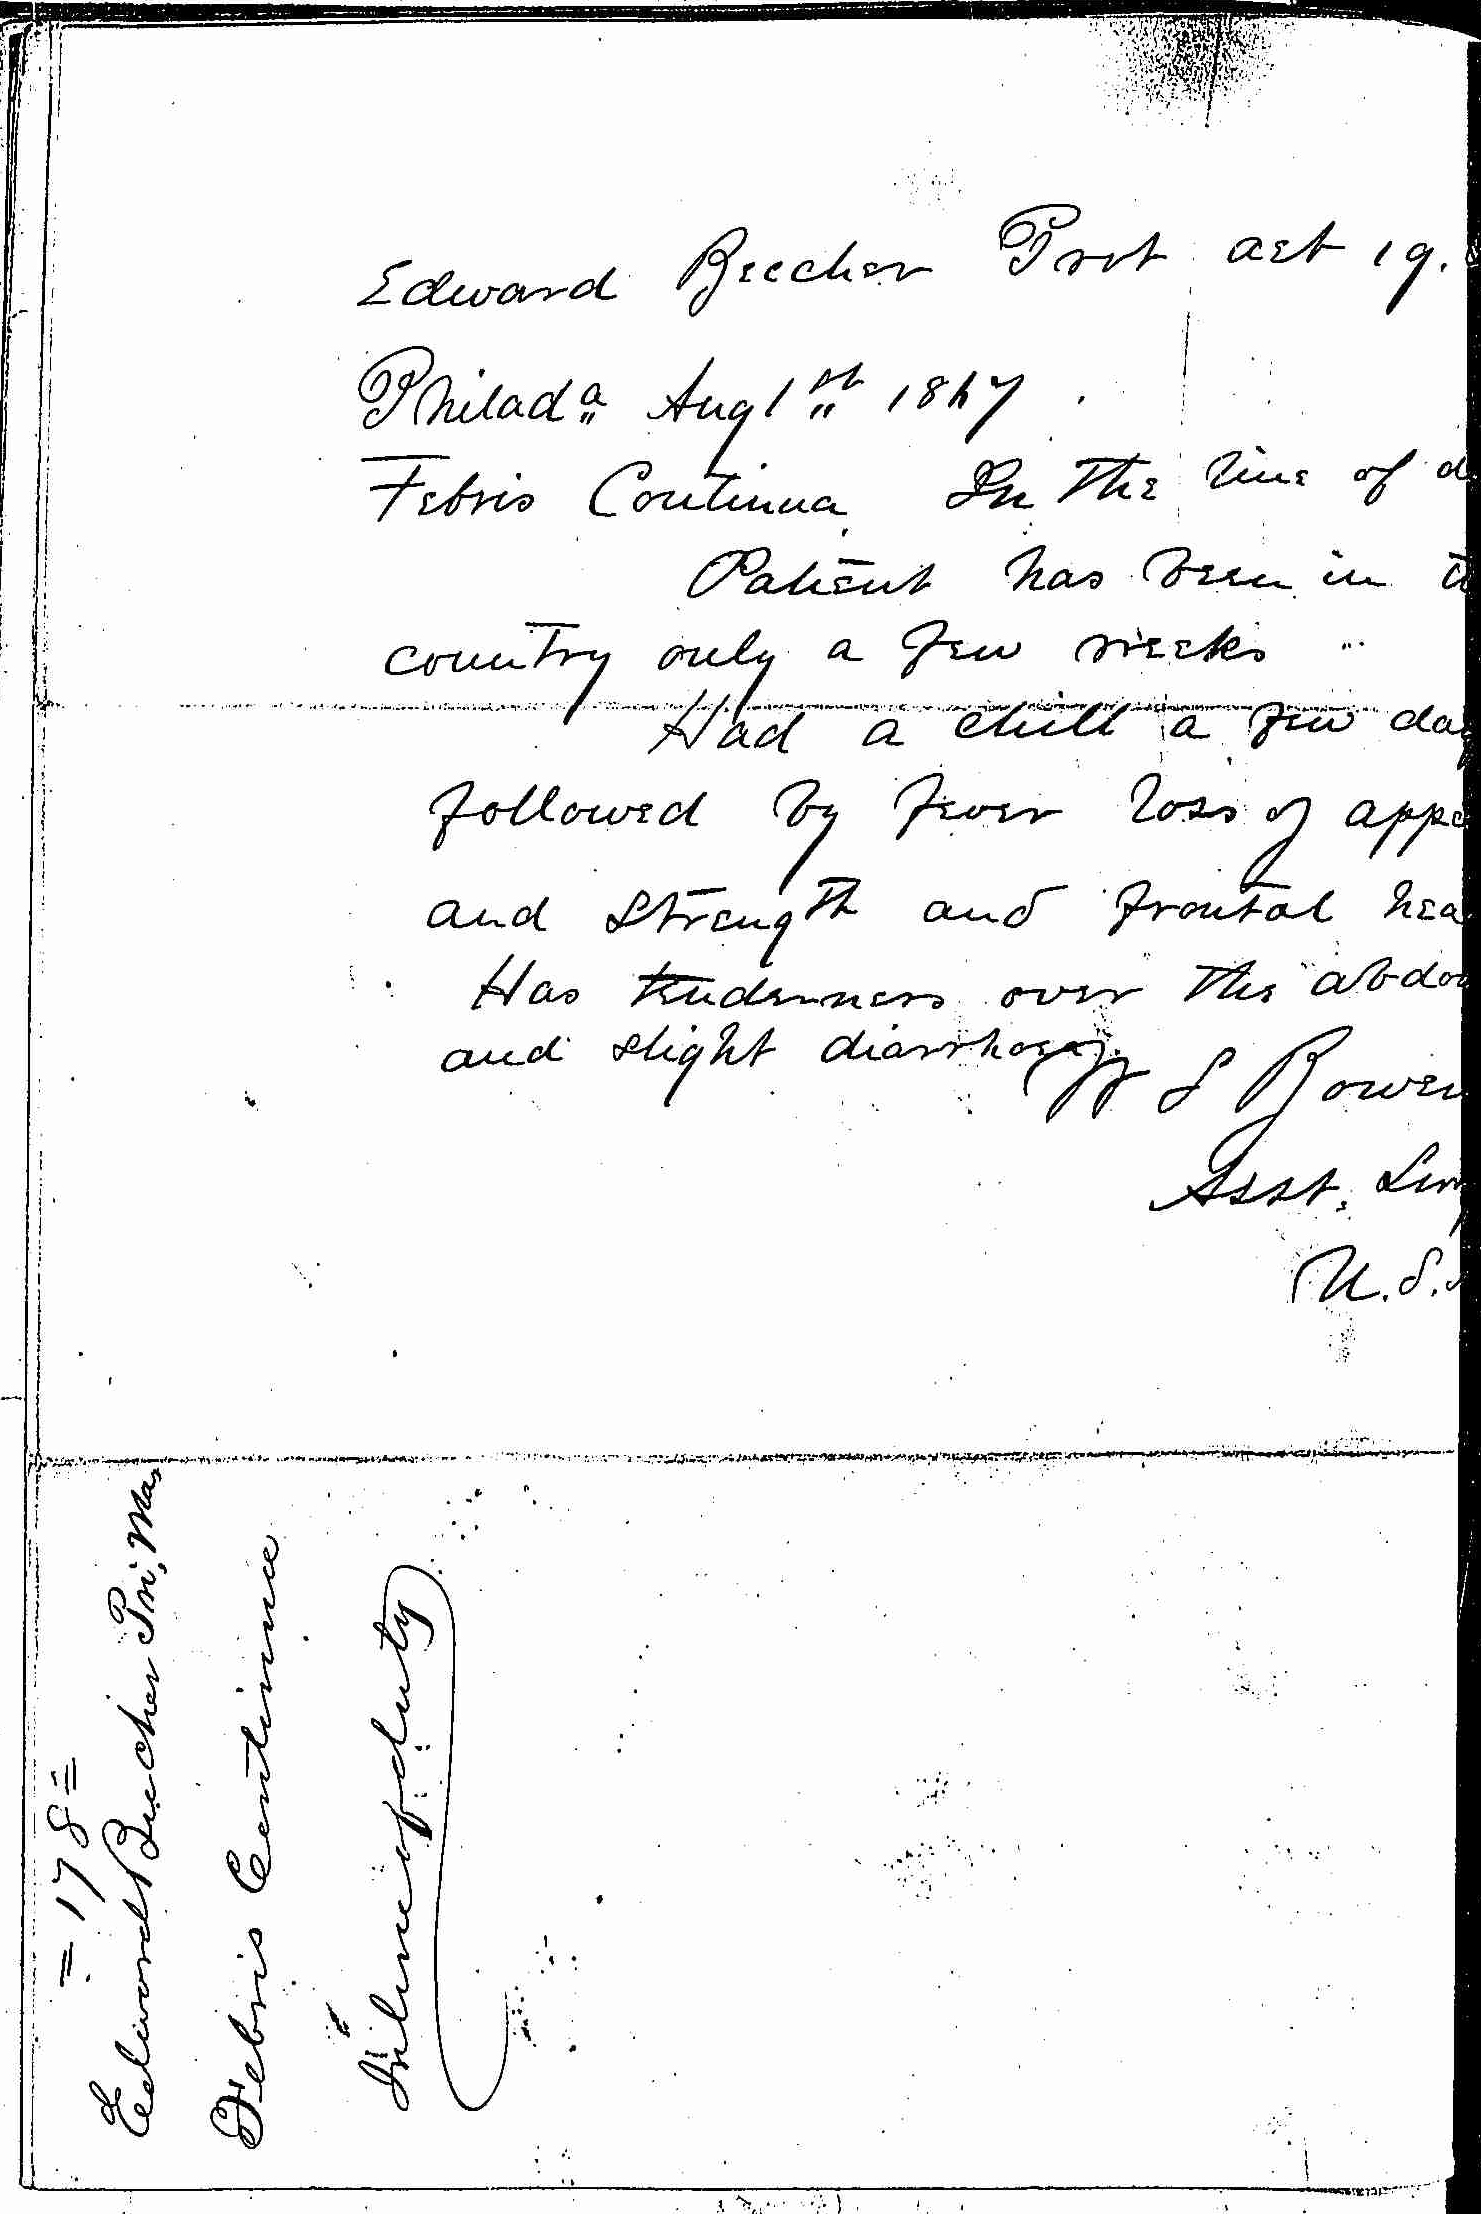 Edward Beecher Prvt aet 19.
Philada Aug 1st 1847
Febris Continua In the line of d
Patient has been in t
country only a few weeks
Had a chill a few day
followed by fever loss of appe
and strength and frontal hea
Has tenderness over the abdom
and slight diarrhoea.
W S Bowen
Asst. Sur
U.S.
= 178 =
Edward Beecher Pri. Ma
Febris Continua
In line of duty